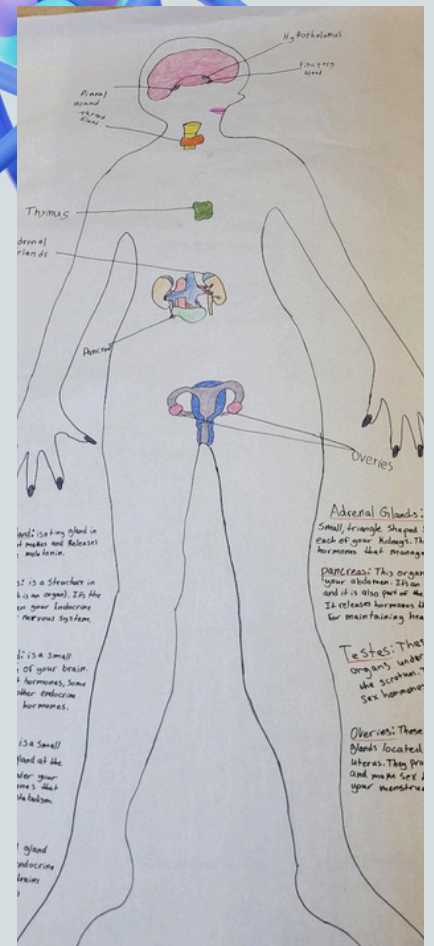 Hypothalamus
Pituitary
gland
Pineal
gland
Thyroid
gland
Thymus
drenal
rlands
Pancrea
Overies
land: is a tiny gland in
t makes and Releases
melatonin.
s: is a Structure in
h is an organ). It's the
en your Endocrine
nervous system.
d: is a small
e of your brain.
t hormones, some
other endocrine
hormones.
is a small
gland at the
nder your
mes that
etabolism
gland
endocrine
brains
Adrenal Glands:
Small, triangle shaped
each of your Kidneys. Th
hormones that manag
pancreas: This organ
your abdomen. It's an
and it is also part of the
It releases hormones th
for maintaining hea
Testes: Thes
organs under
the scrotum. T
sex hormones
Overies: These
glands located
uterus. They pro
and make sex h
your menstru